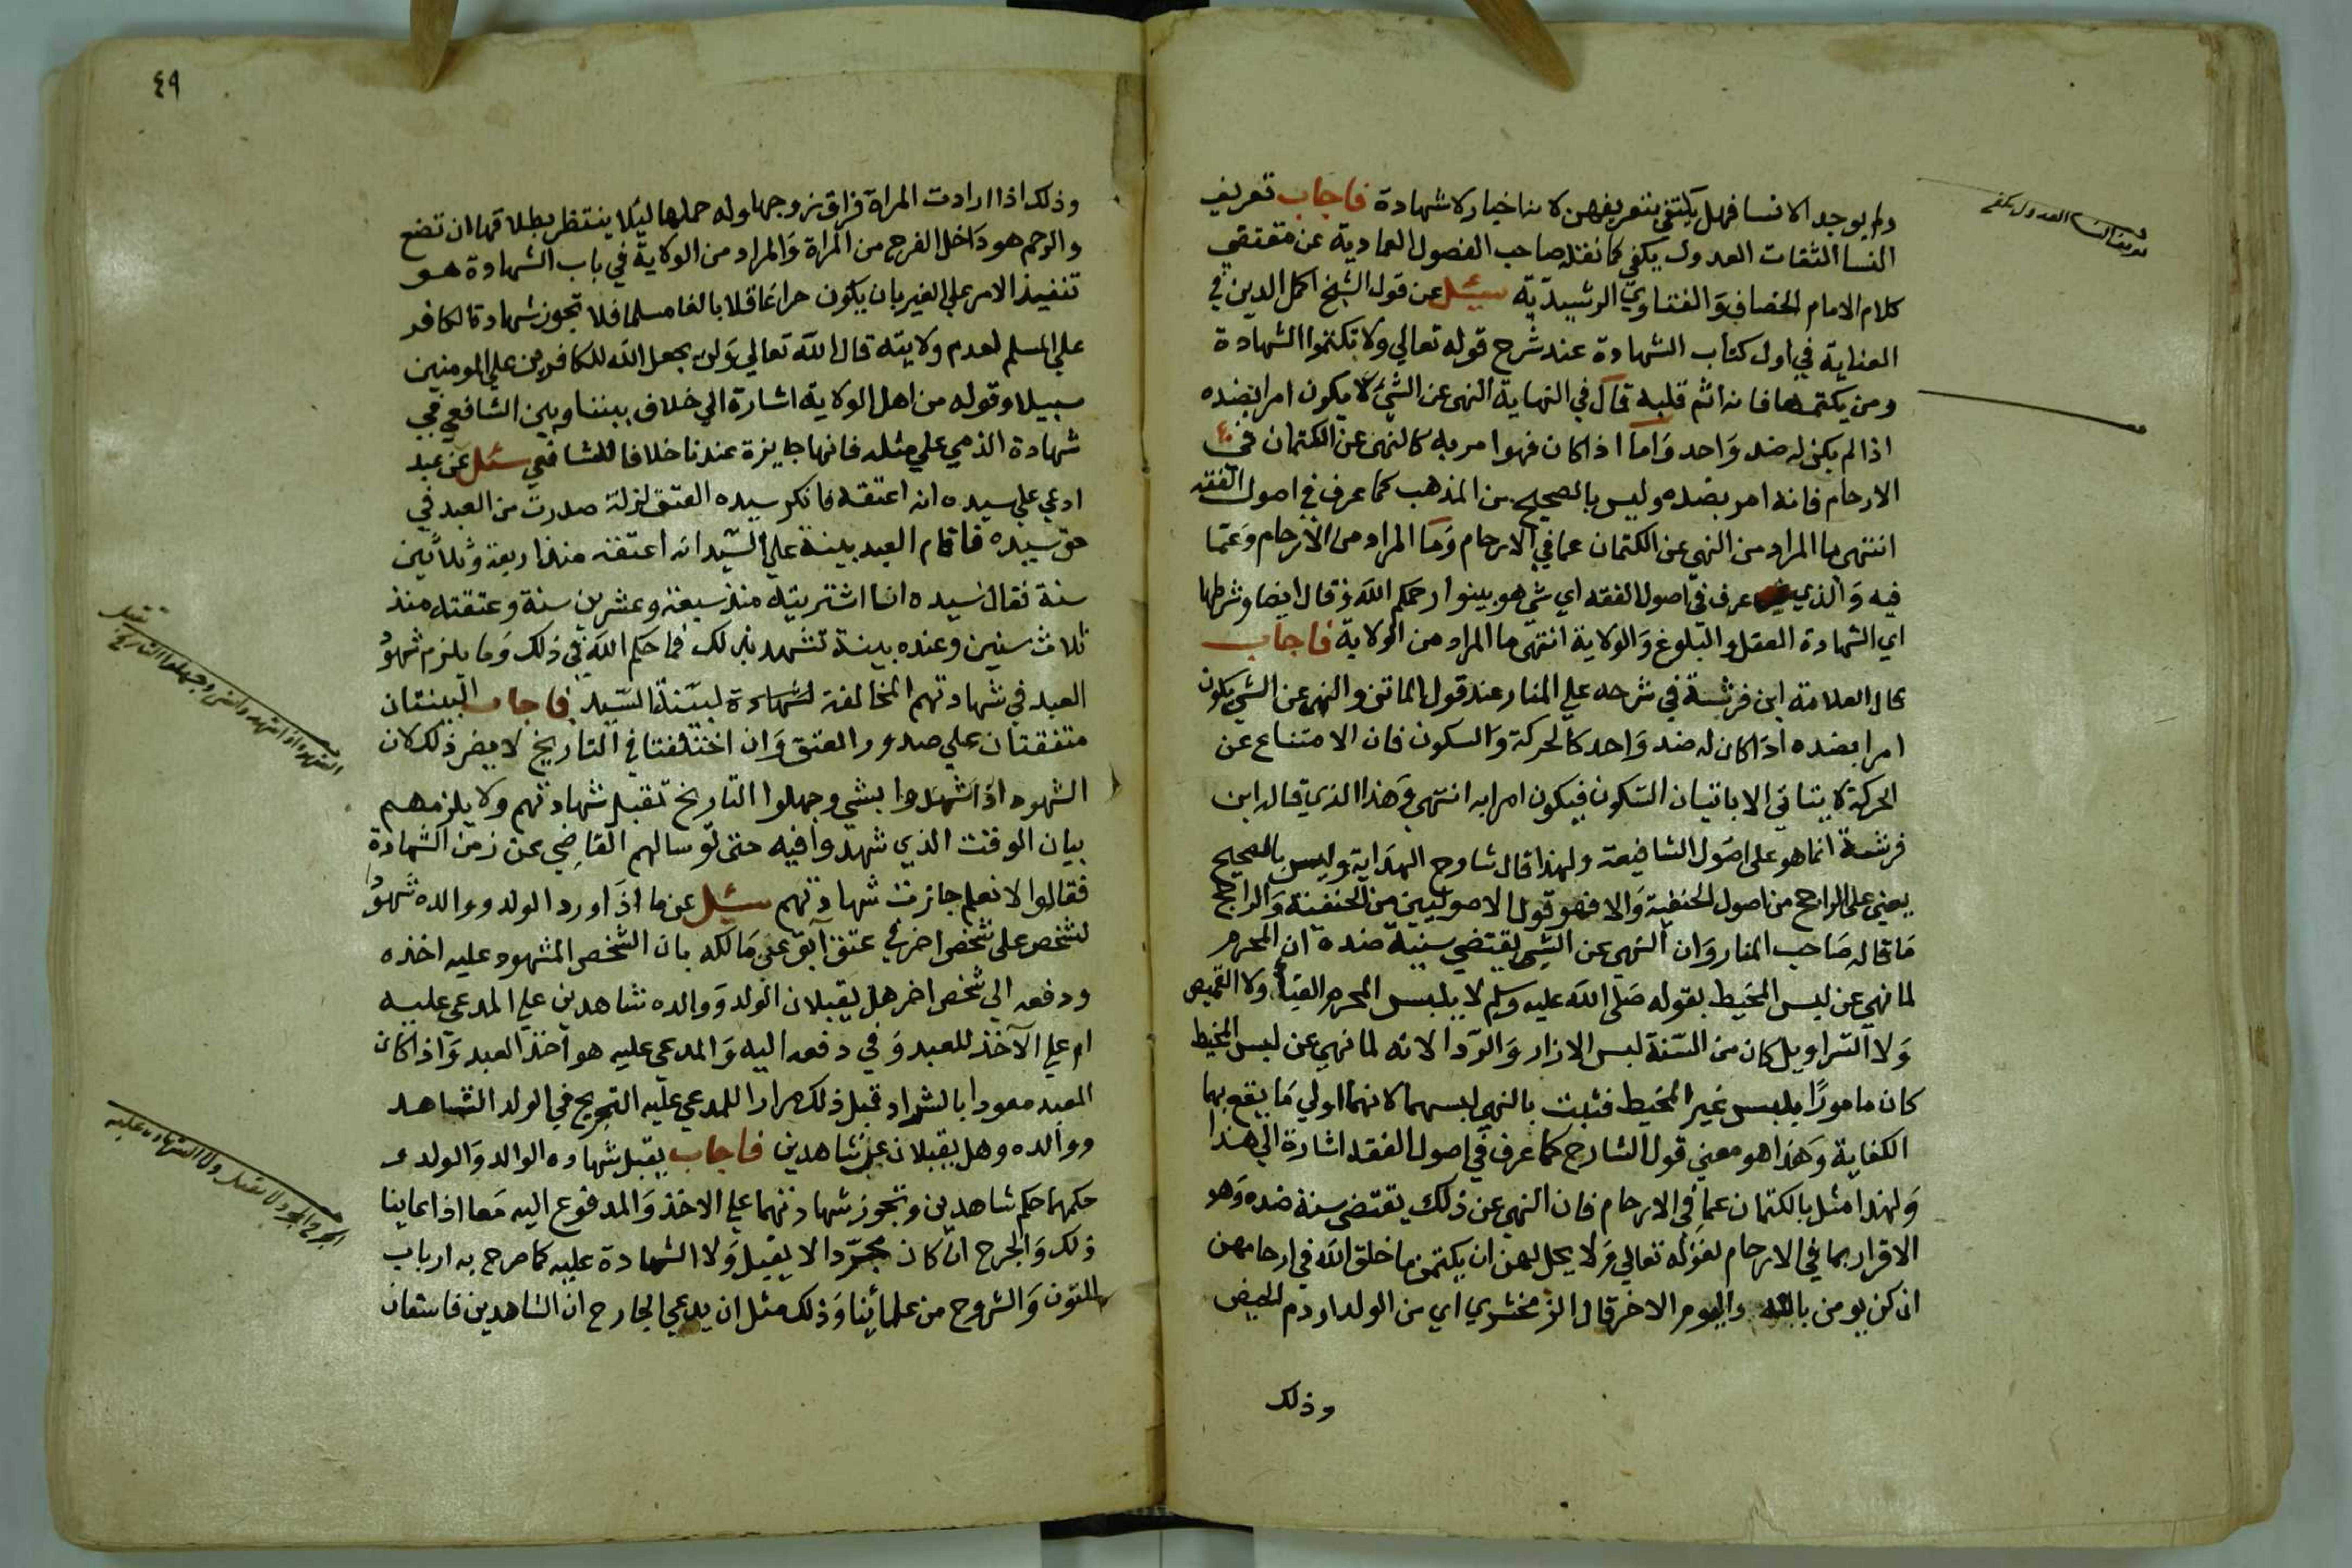 ولم يوجد الا نسا فهل يكتفي بتعريفهن لانها خبار لا شهادة فاجاب تعريف
النسا الثقات العدول يكفي كما نقله صاحب الفصول العمادية عن
كلام الامام الخصاف وَالفتاوي الرشيدية سئل عن قول الشيخ اكمل الدين في
العناية في اول كتاب الشهادة عند شرح قوله تعالي ولا تكتموا الشهادة
ومن يكتمها فانه اثم قلبه قال في النهاية النهى عن الشئ لا يكون امرا بضده
اذا لم يكن له ضد وَاحد وَاما اذا كان فهوا مر به كالنهى عن الكتمان في
الارحام فانه امر بضده وليس بالصحيح من المذهب كما عرف في اصول الفقه
انتهى ما المراد من النهي عن الكتمان عما في الارحام وَما المراد من الارحام وَعما
فيه وَالذي عرف في اصول الفقه اي شي هو بينوا رحمكم الله وَقال ايضا وشرطها
اي الشهادة العقل والبلوغ وَالولاية انتهى ما المراد من الولاية فاجاب
قال العلامة ابن فرشتة في شرحه علي المنار عند قول الماتن والنهى عن الشي يكون
امرا بضده اذا كان له ضد وَاحد كالحركة وَالسكون فان الامتناع عن
الحركة لا يتاتي الا باتيان السكون فيكون امرا به انتهى وَهذا الذي قاله ابن
فرشتة انما هو على اصول الشافعية ولهذا قال شارح الهداية وليس بالصحيح
يعني على الراجح من اصول الحنفية وَالا فهو قول الاصوليين من الحنفية وَالراجح
مَا قاله صَاحب المنار وَان النهي عن الشي يقتضي سنية ضده ان المحرم
لما نهي عن لبس المخيط بقوله صَلى الله عليه وسلم لا يلبس المحرم القبا ولا القميص
وَلا السراويل كان من السّنة لبس الازار وَالردا لانه لما نهي عن لبس المخيط
كان مامورًا بلبس غير المخيط فثبت بالنهي لبسهما لانهما اولي مَا يقع بهما
الكفاية وَهَذا هو معني قول الشارح كما عرف في اصول الفقه اشارة الي هذا
وَلهذا مثل بالكتمان عما في الارحام فان النهي عن ذلك يقتضي سنة ضده وَهو
الاقرار بما في الارحام لقوله تعالي وَلا يحل لهن ان يكتمن ما خلق الله في ارحامهن
ان كن يومن بالله واليوم الاخر قال الزمخشري اي من الولد او دم الحيض
وذلك
تعريف النسا العدول يكفي
٤٩
وذلك اذا ارادت المراة فراق زوجها وله حملها ليلا ينتظر بطلاقها ان تضع
والرحم هو دَاخل الفرج من المراة وَالمراد من الولاية في باب الشهادة هو
تنفيذ الامر علي الغير بان يكون حرا عَاقلا بالغا مسلما فلا تجوز شهادة الكافر
علي المسلم لعدم ولايته قال الله تعالي وَلن يجعل الله للكافرين علي المومنين
سبيلا وقوله من اهل الولاية اشارة الي خلاف بيننا وبين الشافعي في
شهادة الذمي علي مثله فانها جايزة عندنا خلافا للشافعي سئل عن عبد
ادعي علي سيده انه اعتقه فانكر سيده العتق لزلة صدرت من العبد في
حق سيده فاقام العبد بينة علي السّيد انه اعتقه منذ اربعة وثلاثين
سنة فقال سيده انا اشتريته منذ سبعة وعشرين سنة وعتقته منذ
ثلاث سنين وعنده بينة تشهد بذلك فما حكم الله في ذلك وَما يلزم شهود
العبد في شهادتهم المخالفة لشهادة لبيّنة السّيد فاجاب البينتان
متفقتان علي صدور العتق وَان اختلفتا في التاريخ لا يضر ذلك لان
الشهود اذا شهدوا بشي وجهلوا التاريخ تقبل شهادتهم ولا يلزمهم
بيان الوقت الذي شهدوا فيه حتى لو سالهم القاضي عن زمن الشهادة
فقالوا لا نعلم جازت شهادتهم سئل عن ما اذا ورد الولد ووالده شهود
لشخص على شخص اخر في عتق آبق عن مَالكه بان الشخص المشهود عليه اخذه
ودفعه الي شخص اخر هل يقبلان الولد وَوالده شاهدين علي المدعي عليه
ام علي الآخذ للعبد وَفي دفعه اليه وَالمدعى عليه هو آخذ العبد وَاذا كان
العبد معودا بالشراد قبل ذلك مرارا للمدعي عليه التجريح في الولد الشاهد
ووالده وهل يقبلان عن شاهدين فاجاب يقبل شهاده الوالد وَالولد
حكمهما حكم شاهدين وتجوز شهادتهما علي الاخذ وَالمدفوع اليه مَعا اذا عاينا
ذلك وَالجرح ان كان مجرّدا لا يقبل وَلا الشهادة عليه كما صرح به ارباب
المتون وَالشروح من علمائنا وَذلك مثل ان يدعي الجارح ان الشاهدين فاسقان
تقبل
الشهود اذا شهدوا بشي وجهلوا التاريخ
الجرح المجرد لا يقبل ولا الشهاده عليه